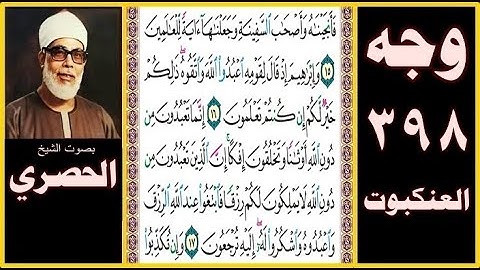 وجه
٣٩٨
العنكبوت
فَأَنجَيْنَٰهُ وَأَصْحَٰبَ ٱلسَّفِينَةِ وَجَعَلْنَٰهَآ ءَايَةً لِّلْعَٰلَمِينَ
١٥ وَإِبْرَٰهِيمَ إِذْ قَالَ لِقَوْمِهِ ٱعْبُدُوا۟ ٱللَّهَ وَٱتَّقُوهُ ذَٰلِكُمْ
خَيْرٌ لَّكُمْ إِن كُنتُمْ تَعْلَمُونَ ١٦ إِنَّمَا تَعْبُدُونَ مِن
دُونِ ٱللَّهِ أَوْثَٰنًا وَتَخْلُقُونَ إِفْكًا إِنَّ ٱلَّذِينَ تَعْبُدُونَ مِن
دُونِ ٱللَّهِ لَا يَمْلِكُونَ لَكُمْ رِزْقًا فَٱبْتَغُوا۟ عِندَ ٱللَّهِ ٱلرِّزْقَ
وَٱعْبُدُوهُ وَٱشْكُرُوا۟ لَهُۥٓ إِلَيْهِ تُرْجَعُونَ ١٧ وَإِن تُكَذِّبُوا۟
بصوت الشيخ
الحصري